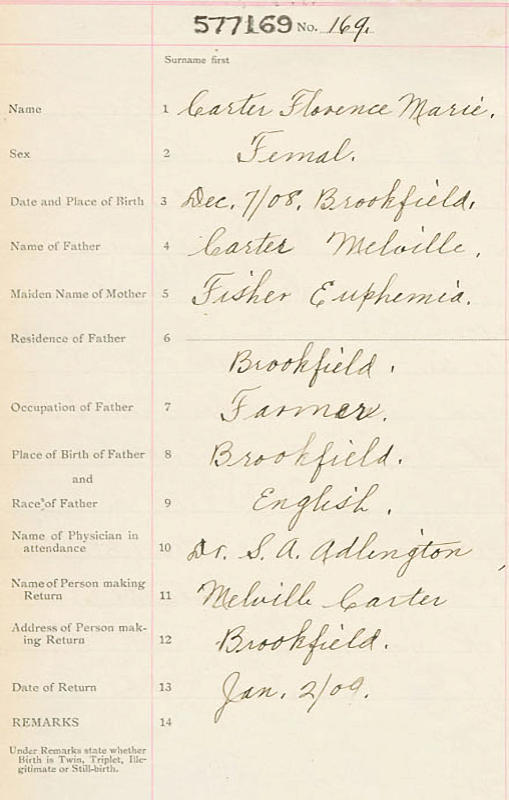 577169 No. 169.
Surname first
Name 1 Carter Florence Marie.
Sex 2 Femal.
Date and Place of Birth 3 Dec. 7/08. Brookfield.
Name of Father 4 Carter Melville.
Maiden Name of Mother 5 Fisher Euphemia.
Residence of Father 6
Brookfield.
Occupation of Father 7 Farmer.
Place of Birth of Father 8 Brookfield.
and
Race of Father 9 English.
Name of Physician in
attendance 10 Dr. S. A. Adlington
Name of Person making
Return 11 Melville Carter
Address of Person mak-
ing Return 12 Brookfield.
Date of Return 13 Jan. 2/09.
REMARKS 14
Under Remarks state whether
Birth is Twin, Triplet, Ille-
gitimate or Still-birth.